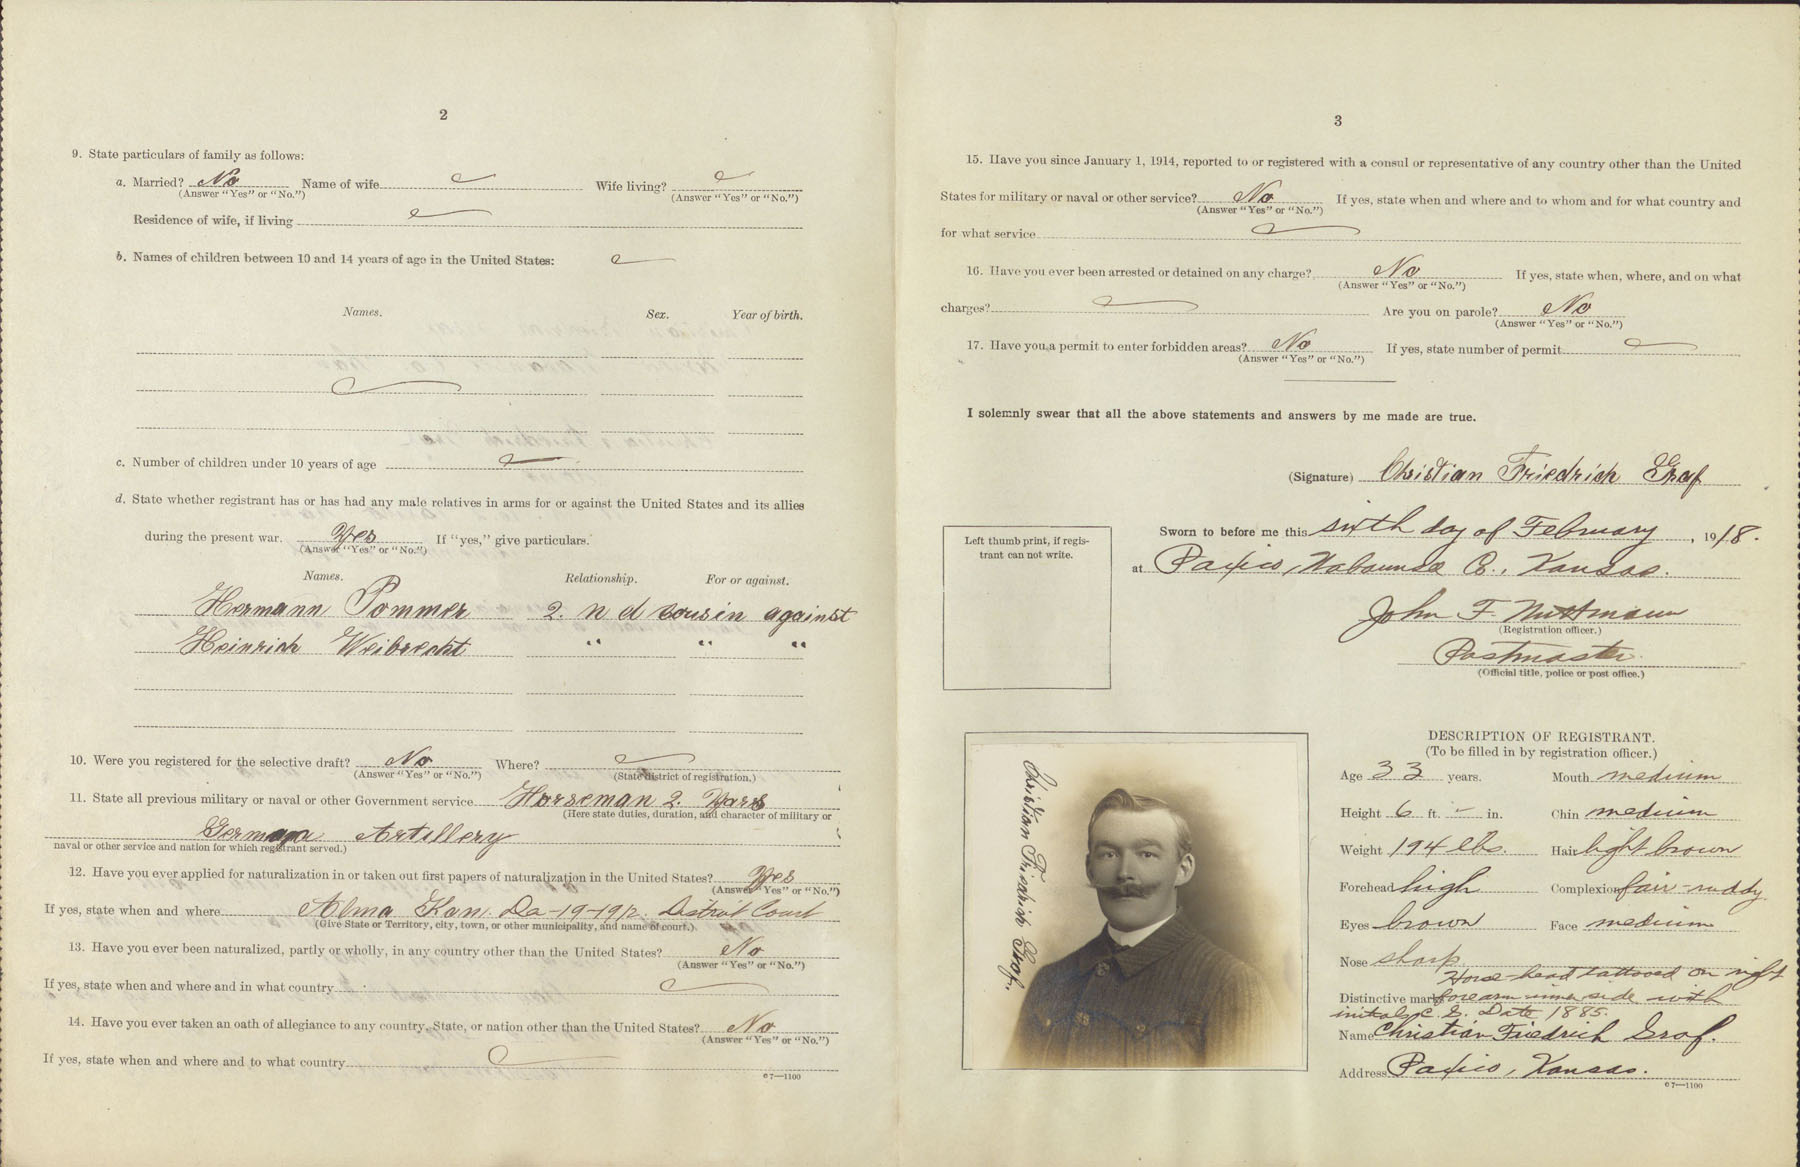 2
9. State particulars of family as follows:
a. Married? No Name of wife Wife living?
(Answer "Yes" or "No.") (Answer "Yes" or "No.")
Residence of wife, if living
b. Names of children between 10 and 14 years of age in the United States:
Names. Sex. Year of birth.
c. Number of children under 10 years of age
d. State whether registrant has or has had any male relatives in arms for or against the United States and its allies
during the present war. Yes If "yes," give particulars.
(Answer "Yes" or "No.")
Names. Relationship. For or against.
Hermann Pommer 2. nd cousin against
Heinrich Weibrecht " " "
10. Were you registered for the selective draft? No Where?
(Answer "Yes" or "No.") (State district of registration.)
11. State all previous military or naval or other Government service Horseman 2. Years
(Here state duties, duration, and character of military or
German Artillery
naval or other service and nation for which registrant served.)
12. Have you ever applied for naturalization in or taken out first papers of naturalization in the United States? Yes
(Answer "Yes" or "No.")
If yes, state when and where Alma Kan. 19-1912. District Court
(Give State or Territory, city, town, or other municipality, and name of court.)
13. Have you ever been naturalized, partly or wholly, in any country other than the United States? No
(Answer "Yes" or "No.")
If yes, state when and where and in what country
14. Have you ever taken an oath of allegiance to any country, State, or nation other than the United States? No
(Answer "Yes" or "No.")
If yes, state when and where and to what country
c7—1100
3
15. Have you since January 1, 1914, reported to or registered with a consul or representative of any country other than the United
States for military or naval or other service? No If yes, state when and where and to whom and for what country and
(Answer "Yes" or "No.")
for what service
16. Have you ever been arrested or detained on any charge? No If yes, state when, where, and on what
(Answer "Yes" or "No.")
charges? Are you on parole? No
(Answer "Yes" or "No.")
17. Have you a permit to enter forbidden areas? No If yes, state number of permit
(Answer "Yes" or "No.")
I solemnly swear that all the above statements and answers by me made are true.
(Signature) Christian Friedrich Graf
Left thumb print, if regis-
trant can not write.
Sworn to before me this sixth day of February, 1918.
at Paxico, Wabaunsee Co., Kansas.
John F.
(Registration officer.)
Postmaster
(Official title, police or post office.)
Christian Friedrich Graf.
DESCRIPTION OF REGISTRANT.
(To be filled in by registration officer.)
Age 33 years. Mouth medium
Height 6 ft. - in. Chin medium
Weight 194 lbs. Hair light brown
Forehead high Complexion fair-ruddy
Eyes brown Face medium
Nose sharp
Horse-head tattooed on right
Distinctive marks forearm inner side with
initials C. G. Date 1885.
Name Christian Friedrich Graf.
Address Paxico, Kansas.
c7—1100